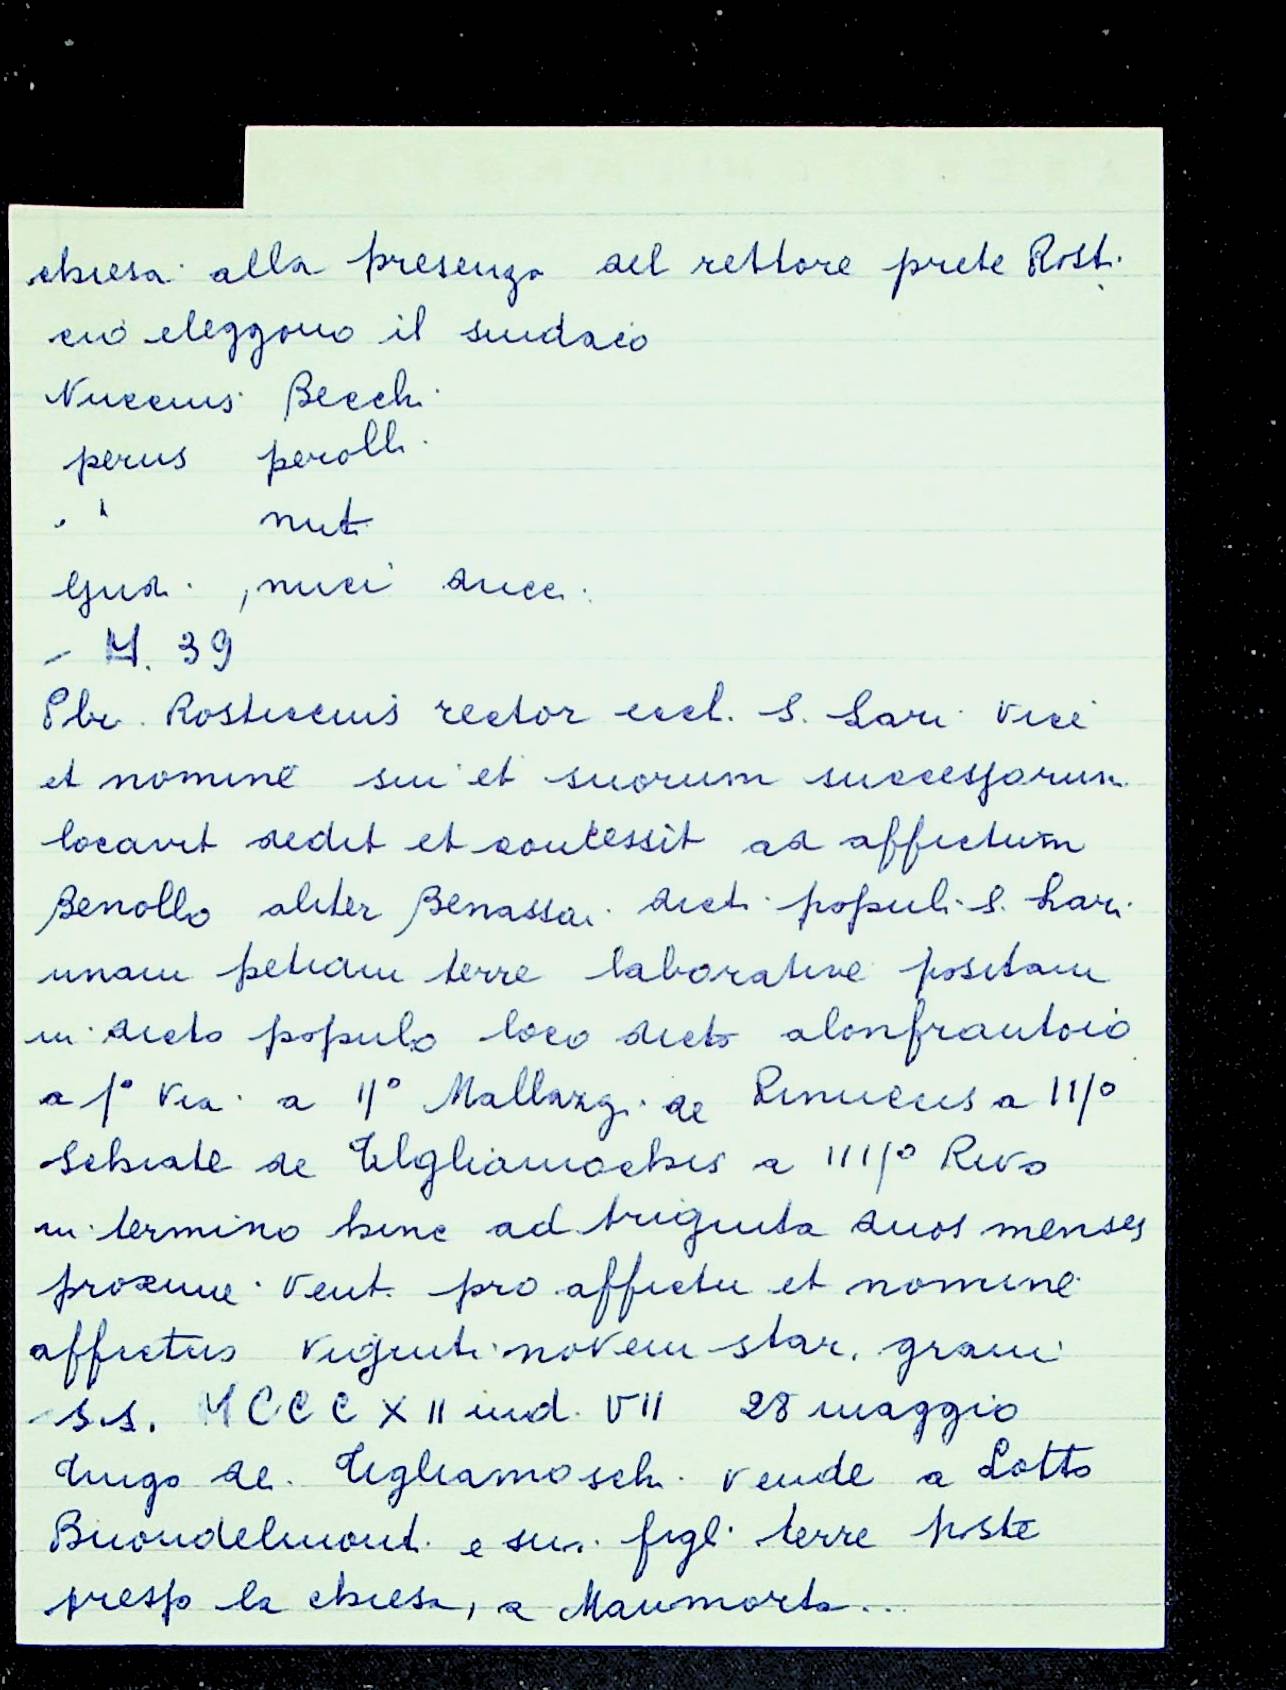 chiesa alla presenza del rettore prete Rosti
cio eleggono il sindaco
Nuccius Becchi
perus perolli
" nuti
Guid. , nuci ducci.
- M. 39
Pbr. Rosticcius rector eccl. S. Lari vice
et nomine sui et suorum successorum
locavit dedit et concessit ad affictum
Benollo aliter Benassai dicti populi S. Lari
unam petiam terre laborative positam
in dicto populo loco dicto alonfrantoio
a I° via a II° Mallazgi de Pinuccis a III°
Schiate de Teghiamochis a IIII° Rivo
in termino hinc ad triginta duos menses
proxime vent. pro affictu et nomine
affictus viginti novem star. grani
- s.s. MCCCXII ind. VII 28 maggio
Lingo de Tegliamoschi vende a Lotto
Buondelmonti e suoi figli terre poste
presso la chiesa, a Maumorta...